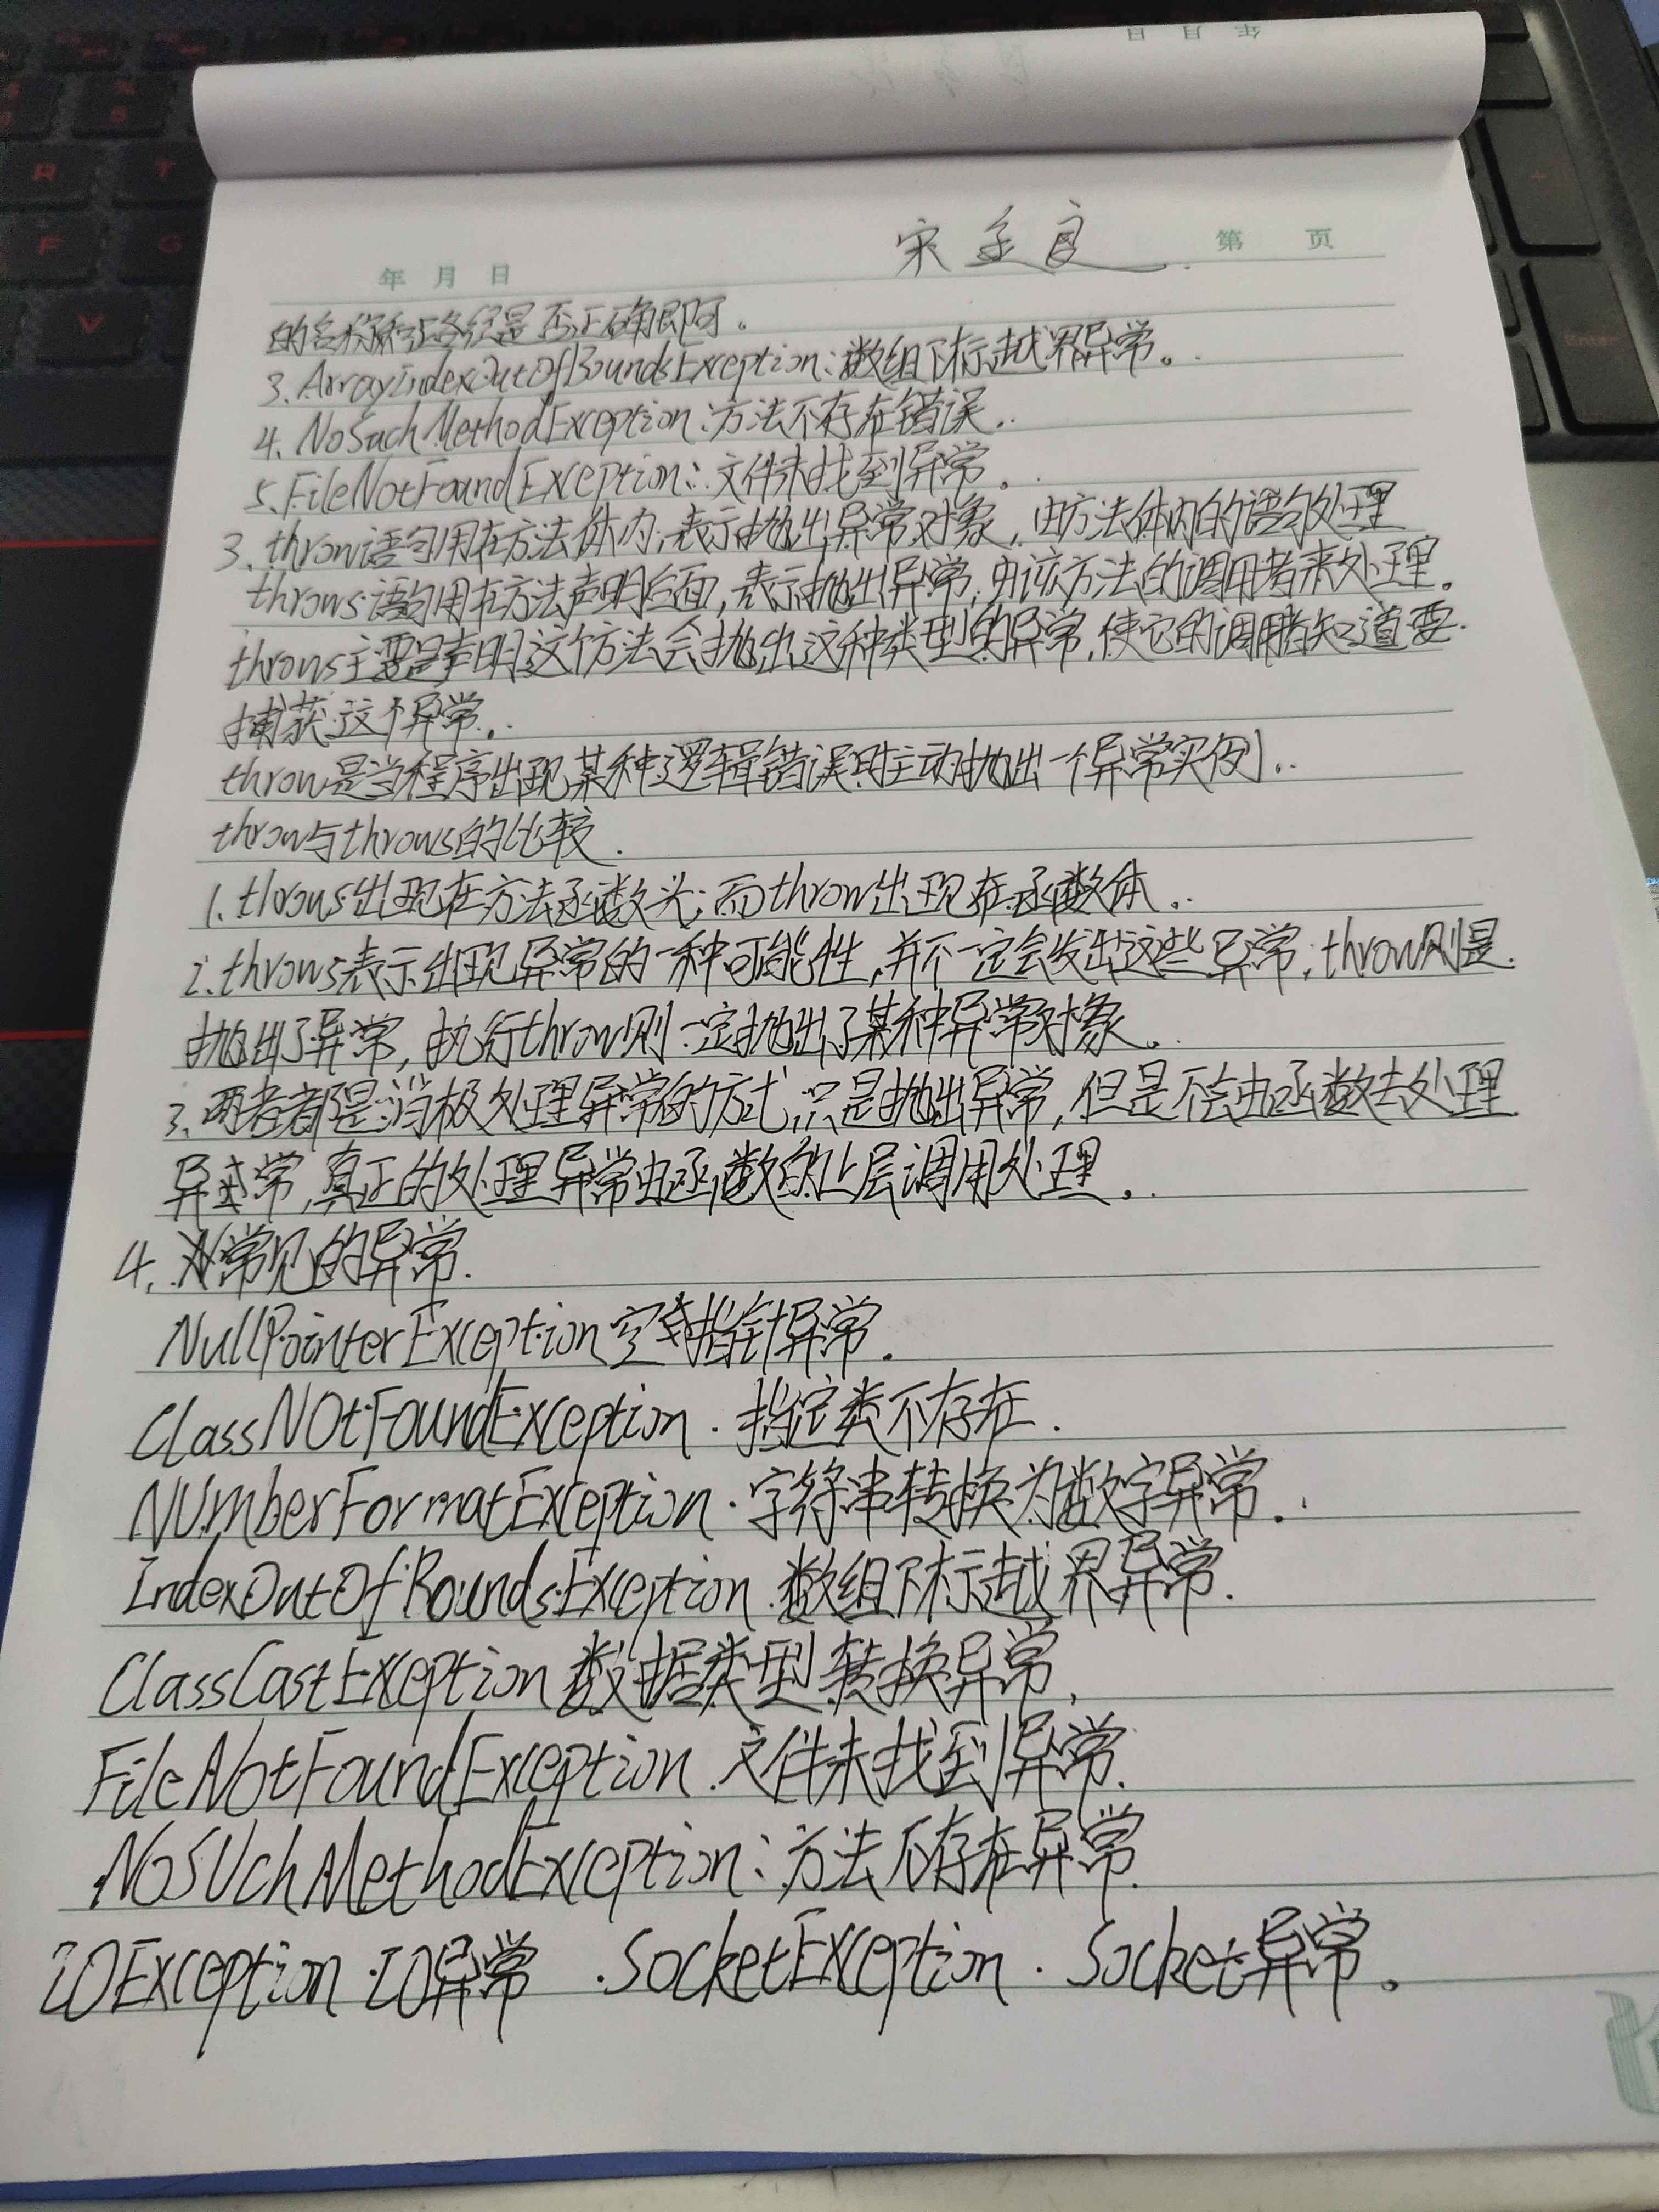 年 月 日
宋 良
第 页
年 月 日
的名称和路径是否正确即可。
3. ArrayIndexOutOfBoundsException:数组下标越界异常。
4. NoSuchMethodException:方法不存在错误.
5. FileNotFoundException:文件未找到异常。
3. throw语句用在方法体内,表示抛出异常对象,由方法体内的语句处理
throws语句用在方法声明后面,表示抛出异常,由该方法的调用者来处理。
throws主要是声明这个方法会抛出这种类型的异常,使它的调用者知道要
捕获这个异常.
throw是当程序出现某种逻辑错误时主动抛出一个异常实例.
throw与throws的比较.
1. throws出现在方法函数头;而throw出现在函数体.
2. throws表示出现异常的一种可能性,并不一定会发出这些异常;throw则是
抛出了异常,执行throw则一定抛出了某种异常对象。
3. 两者都是消极处理异常的方式,只是抛出异常,但是不会由函数去处理
异常,真正的处理异常由函数的上层调用处理。
4. 常见的异常.
NullPointerException空指针异常.
ClassNotFoundException.指定类不存在.
NUmberFormatException.字符串转换为数字异常.
IndexOutOfBoundsException.数组下标越界异常.
ClassCastException数据类型转换异常.
FileNotFoundException.文件未找到异常.
NoSUchMethodException:方法不存在异常.
IOException.IO异常 .SocketException.Socket异常。
R
T
F
G
V
Enter